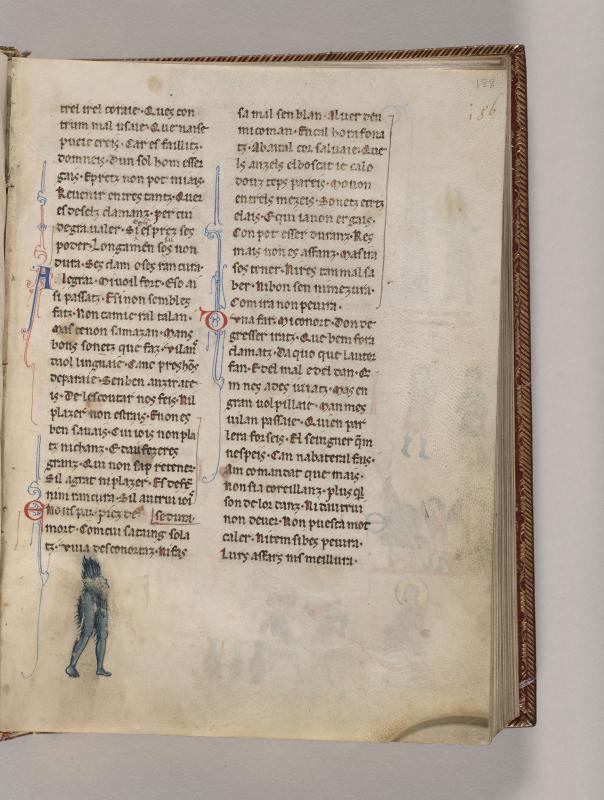 188
186
trei irei coraie · Quez con
trum mal usaie · Que naise
pueit creis · Car es faillitz
domneis · dun sol hom esser
gais · Epretz non pot mais
Reuenir entres tantz · Quer
es deselz clamanz · per cui
degra ualer
poder · Longamen sos non
dura · Ses dam oses rancura
Alegrar · Mi uoil fort · Eso ai
si passatz · Esi non sembles
fatz · Non camie ral talan ·
Mas tenon samazan · Mans
bons sonetz que faz · vilan
daol linguaie
deparaie · Sen ben auzirate
is · De lescoutar nos feis · Ni
plazer non estrais · Enon es
ben sauais · Cui iois non pla
tz ni chanz · E dau fezeres
granz · Qui non sap retener ·
Sil agrat ni plazer · Es
nim rancura · Sil autrui ioi
Mons par · piez de se dura
mort · Com cui sataing sola
tz · viua desconortaz · Ni fas
sa mal sen blan · Al uer den
mi coman · En cal hora fona
tz · Ab aital cor saluaie · Que
ls anzels el boscatie calo
douz temps pareis · Mouon
entrels mezeis · Sonetz eritz
elais · E qui ia non er gais ·
Con pot esser duranz · Res
mais non es affanz · Mas ira
sos tener · Ni res tan mal sa
ber · Ni bon sen ni mezura ·
Com ira non peiura ·
Vna fat · Mi conort · Don de
gresser iratz · Que ben fora
clamatz · Da quo que lautor
fan · E del mal edel dan · Qe
m nes ades uiratz · Mas en
gran uol pillaie · Man mes
uilan passaie · Qui en par
lera forseis · El seingner qim
nespeis · Can nabateral fais ·
Am comandat que mais ·
Non sia coreillanz · plus ql
son delor danz · Ni dautrui
non deuer · Non puesta mot
caler · Ni tem sibes peiura ·
Lurs affars nis meillura ·